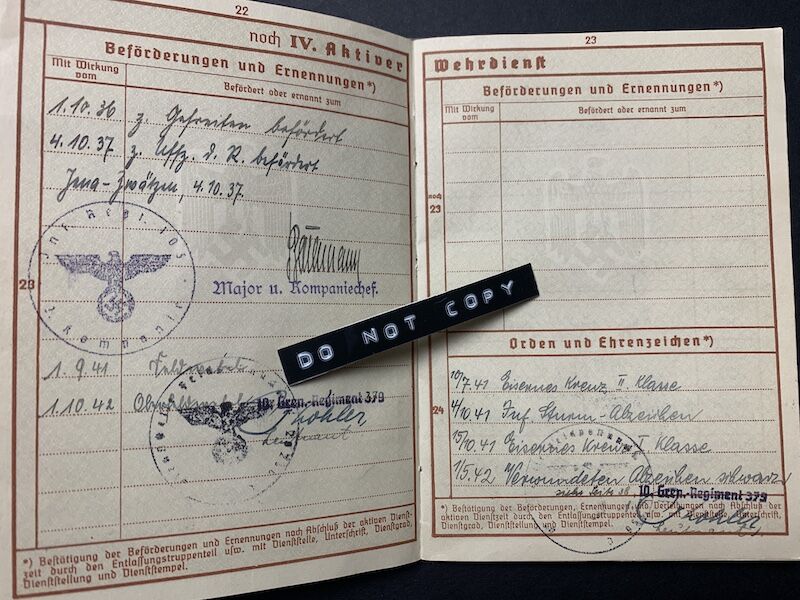 22
noch IV. Aktiver
Beförderungen und Ernennungen*)
Mit Wirkung vom
Befördert oder ernannt zum
1.10.36 z. Gefreiten befördert
4.10.37 z. Uffz. d. R. befördert
Jena-Zwätzen, 4.10.37.
Major u. Kompaniechef.
23
1.9.41 Feldwebel
1.10.42
10. Gren.-Regiment 379
Leutnant
*) Bestätigung der Beförderungen und Ernennungen nach Abschluß der aktiven Dienst-
zeit durch den Entlassungstruppenteil usw. mit Dienststelle, Unterschrift, Dienstgrad,
Dienststellung und Dienststempel.
DO NOT COPY
23
Wehrdienst
Beförderungen und Ernennungen*)
Mit Wirkung vom
Befördert oder ernannt zum
noch
23
Orden und Ehrenzeichen*)
10/7.41 Eisernes Kreuz II. Klasse
4/10.41 Inf. Sturm-Abzeichen
24
15/10.41 Eisernes Kreuz I Klasse
1/5.42 Verwundeten Abzeichen schwarz
siehe Seite
10. Gren.-Regiment 379
*) Bestätigung der Beförderungen, Ernennungen und Verleihungen nach Abschluß der
aktiven Dienstzeit durch den Entlassungstruppenteil usw. mit Unterschrift,
Dienstgrad, Dienststellung und Dienststempel.